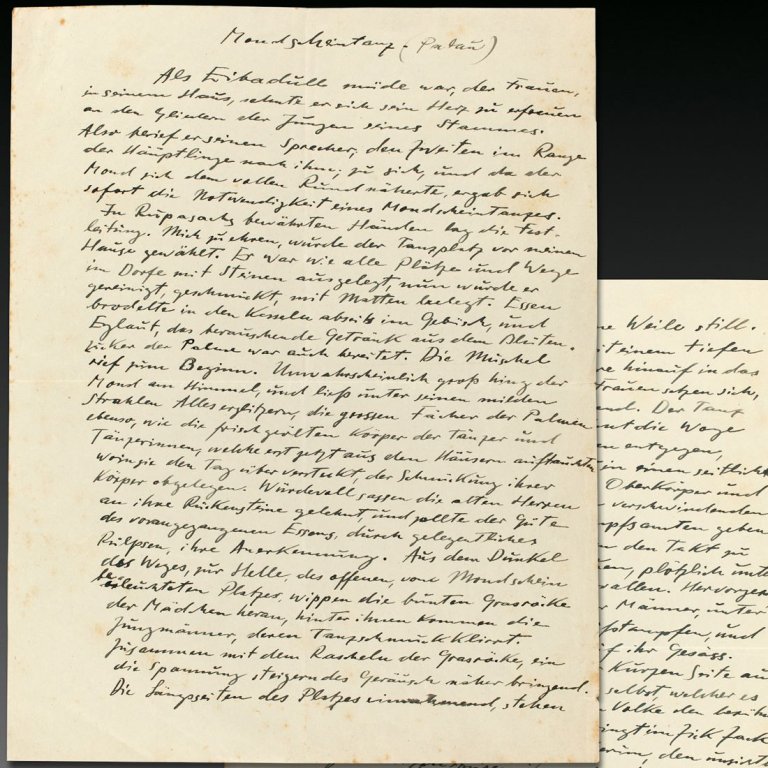 Mondscheintanz (Palau)
Als Eibadull müde war, der Frauen,
in seinem Haus, sehnte er sich sein Herz zu erfreuen
an den Gliedern der Jungen seines Stammes.
Also berief er seinen Sprecher, den zweiten im Range
der Häuptlinge nach ihm, zu sich, und da der
Mond sich dem vollen Rund näherte, ergab sich
sofort die Notwendigkeit eines Mondscheintanzes.
In Rupasachs bewährten Händen lag die Fest-
leitung. Mich zu ehren, wurde der Tanzplatz vor meinem
Hause gewählt. Er war wie alle Plätze und Wege
im Dorfe mit Steinen ausgelegt, nun wurde er
gereinigt, geschmückt, mit Matten belegt. Essen
brodelte in den Kesseln abseits im Gebüsch, und
Eglaut, das berauschende Getränk aus dem Blüten-
zucker der Palme war auch bereitet. Die Muschel
rief zum Beginn. Unwahrscheinlich groß hing der
Mond am Himmel, und ließ unter seinen milden
Strahlen Alles erglitzern, die grossen Fächer der Palmen
ebenso, wie die frisch geölten Körper der Tänzer und
Tänzerinnen, welche erst jetzt aus den Häusern auftauchten
worin sie den Tag über versteckt, der Schmückung ihrer
Körper obgelegen. Würdevoll sassen die alten Herren
an ihre Rückensteine gelehnt, und zollte der Güte
des vorangegangenen Essens, durch gelegentliches
Rülpsen, ihre Anerkennung. Aus dem Dunkel
des Weges, zur Helle, des offenen, vom Mondschein
beleuchteten Platzes, wippen die bunten Grasröcke
der Mädchen heran, hinter ihnen kommen die
Jungmänner, deren Tanzschmuck klirrt.
Zusammen mit dem Rascheln der Grasröcke, ein
die Spannung steigerndes Geräusch näher bringend.
Die Längsseiten des Platzes einnehmend, stehen
Weile still.
einem tiefen
hinauf in das
Frauen setzen sich,
Der Tanz
die Woge
entgegen,
in einen seitlich
Oberkörper und
verschwindenden
geben
den Takt zu
plötzlich
Männer, unter
und
ihr Gesäss.
Kurzen Seite
selbst welcher es
Volke den
im Zick Zack
den